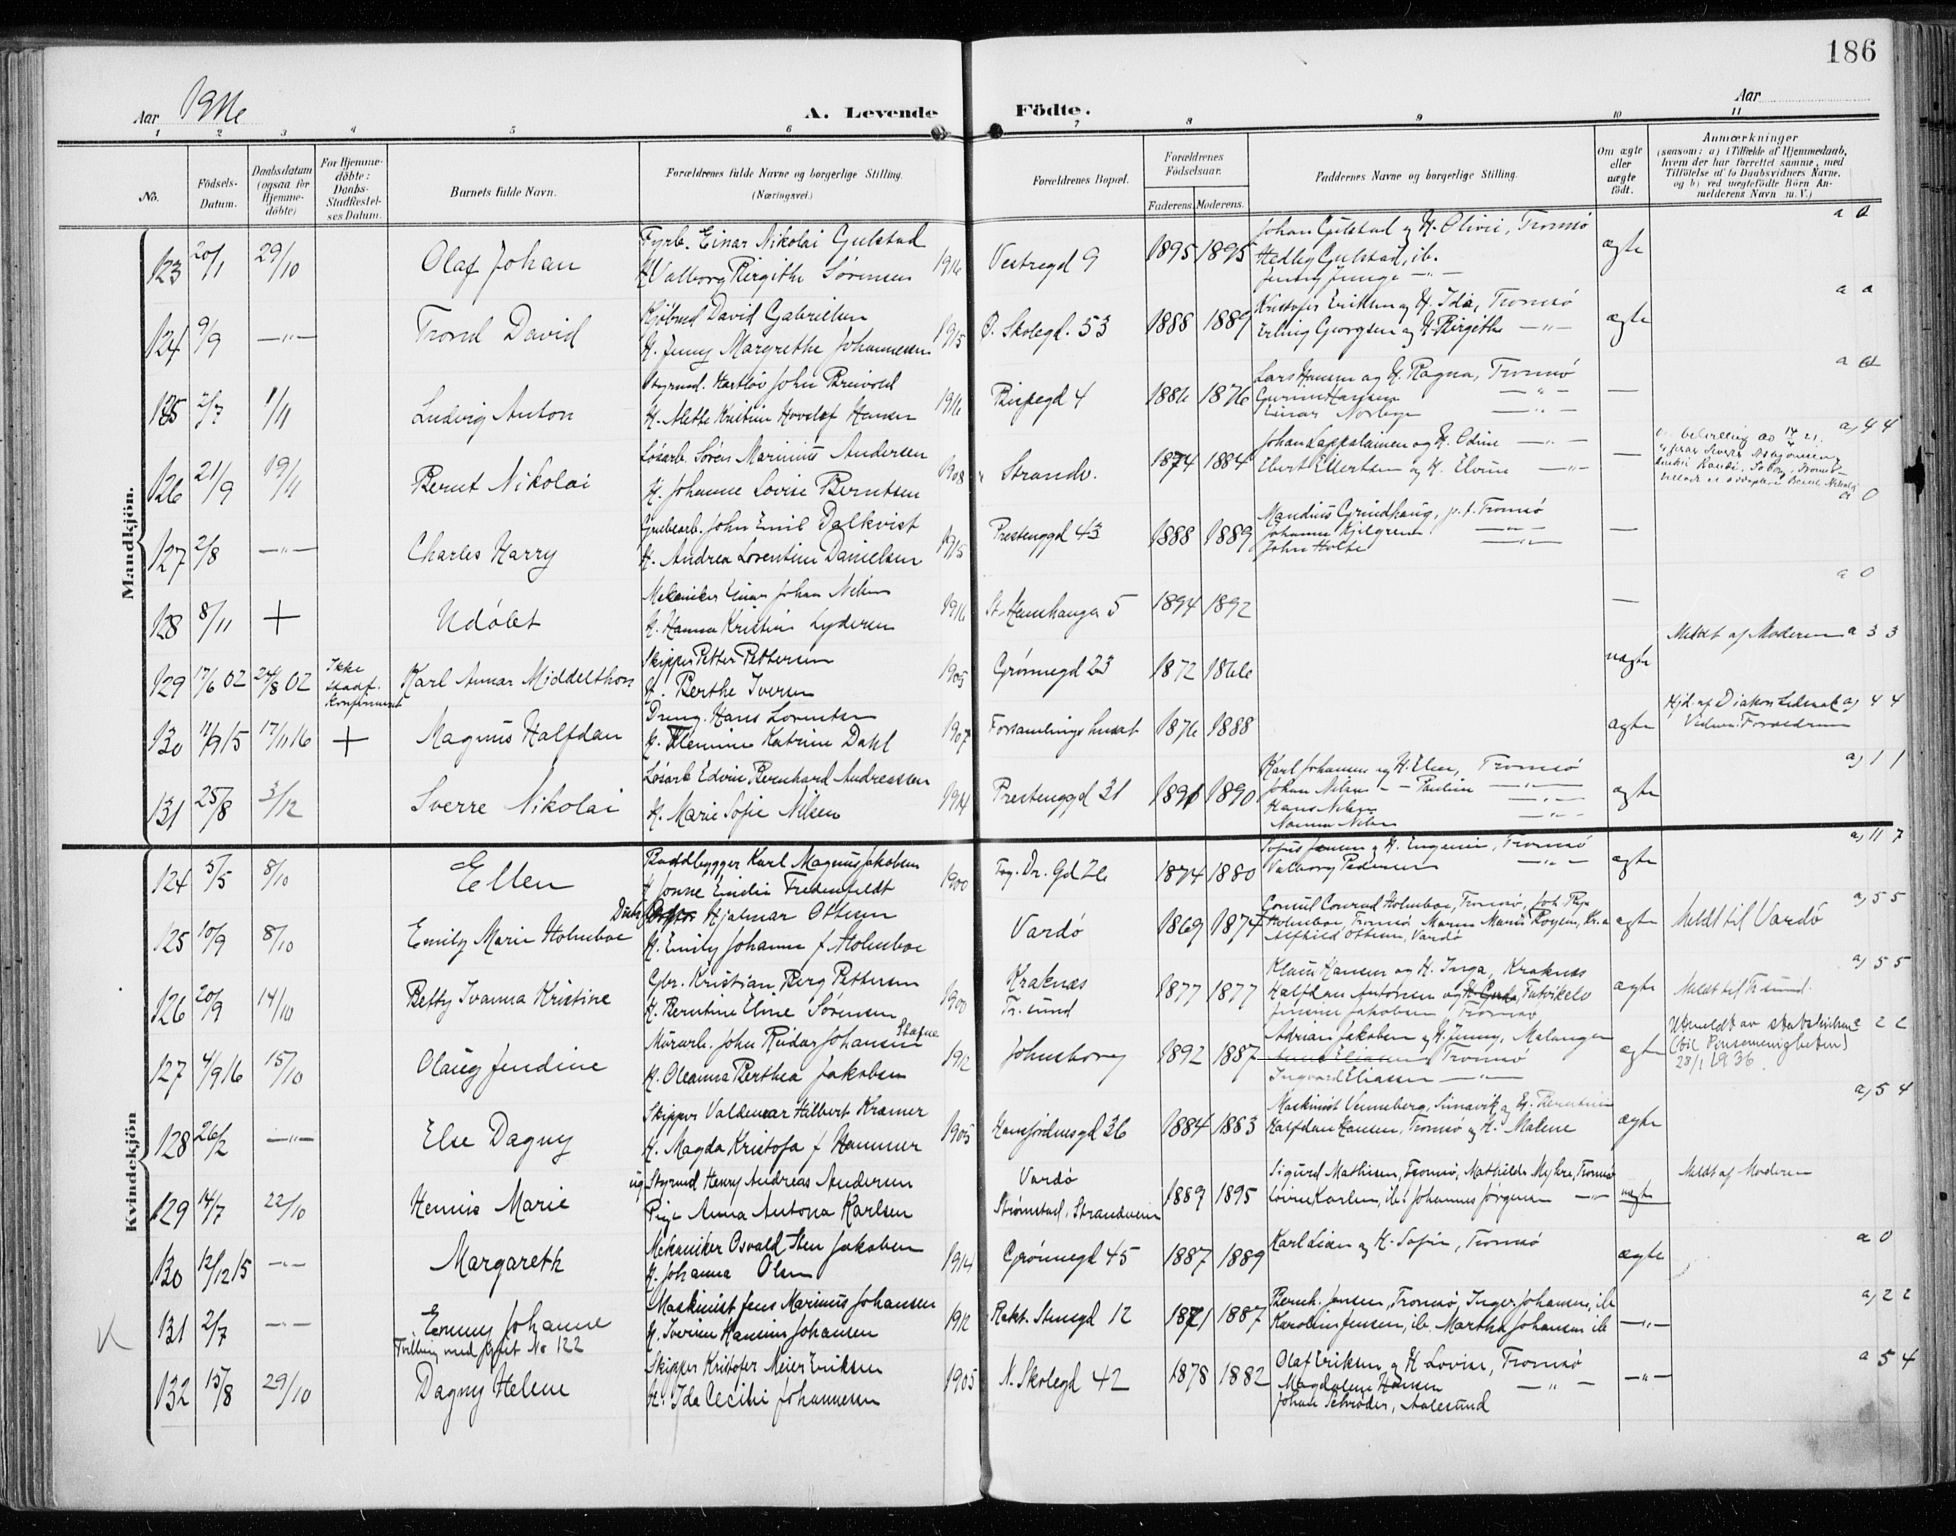 186
Aar 1916
A. Levende Födte.
Aar
1 2 3 4 5 6 7 8 9 10 11
No.
Födsels-Datum.
Daabsdatum (ogsaa for Hjemme-döbte)
For Hjemme-döbte: Daabs-Stadfestel-ses Datum.
Barnets fulde Navn.
Forældrenes fulde Navne og borgerlige Stilling. (Næringsvei.)
Forældrenes Bopæl.
Forældrenes Födselsaar.
Faderens. Moderens.
Faddernes Navne og borgerlige Stilling.
Om ægte eller uægte födt.
Anmærkninger
(saasom: a) i Tilfælde af Hjemmedaab, hvem der har forrettet samme, med Tilföielse af to Daabsvidners Navne, og b) ved uægtefödte Börn Anmelderens Navn m. V.)
Mandkjön.
123 20/1 29/10 Olaf Johan
Fyrb. Einar Nikolai Gulstad
H. Valborg Birgithe Sørensen 1916
Vestregd 9 1895 1895
Johan Gulstad og H. Olivie, Tromsø
Hedley Gulstad, ib.
Jenny Junge -"-
ægte a 0
124 9/9 -"- Trond David
Kjøbmd David Gabrielsen
H. Jenny Margrethe Johannesen 1915
Ø. Skolegd. 53 1888 1889
Kristofer Eriksen og H. Ida, Tromsø
Erling Georgsen og H. Birgithe -"-
ægte a a
125 2/7 1/11 Ludvig Anton
Styrmd. Hartløv John Breivold
H. Alette Kristine Hovelsf Hansen 1916
Bispegd 4 1886 1876
Lars Hansen og H. Ragna, Tromsø
Gunnu Hansen -"-
Einar Norbye -"-
—
126 21/9 19/11 Bernt Nikolai
Løsarb. Søren Marinius Andersen
H. Johanne Lovise Berntsen 1908
Strandv. 1874 1884
Johan Lappalainen og H. Odine -"-
Ebert Eilertsen og H. Elvine -"-
— a) 4 4
127 2/8 -"- Charles Harry
Grubearb. John Emil Dalkvist
H. Andrea Lorentine Danielsen 1915
Prestenggd 43 1888 1889
Mandius Grindhaug, p. t. Tromsø
Johanne Kjilgren -"-
John Holte -"-
— a 0
128 8/11 + Udøbt
Mekaniker Einar Johan Nilsen
H. Hanna Kristine Lydersen 1916
St. Hanshaugen 5 1894 1892
— a 0
129 17/6 02 24/8 02 Ikke stadf. Konfirmeret
Karl Annar Middelthon
Skipper Petter Pettersen
H. Berthe Iversen 1905
Grønnegd 23 1872 1866
uægte
Meldt af Moderen a 3 3
130 11/9 15 17/11 16 + Magnus Halfdan
Dreng. Hans Lorentsen
H. Flemine Katrine Dahl 1907
Forsamlingshuset 1876 1888
ægte
Hjd. af Diakon a) 4 4
131 25/8 3/12 Sverre Nikolai
Løsarb Edvin Bernhard Andreassen
H. Marie Sofie Nilsen 1914
Prestenggd 31 1891 1890
Karl Johansen og H. Elen, Tromsø
Johan Nilsen - - Pauline -"-
Hans Nilsen -"-
Nanna Nilsen -"-
ægte a) 1 1
Kvindekjön
124 5/5 8/10 Ellen
Baadbygger Karl Magnus Jakobsen
H. Jonne Emilie Fredenfeldt 1900
Fog. Dr. Gd 26 1874 1880
Sofus Jensen og H. Eugenie, Tromsø
Valborg Pedersen -"-
ægte a) 11 7
125 10/9 8/10 Emily Marie Holmboe
Hjalmar Ottesen
H. Emily Johanne f. Holmboe
Vardø 1869 1874
Consul Conrad Holmboe, Tromsø,
Holmboe, Tromsø
Alfhild Ottesen, Vardø
ægte Meldt til Vardø a) 5 5
126 20/9 14/10 Betty Ivanna Kristine
Gbr. Kristian Berg Pettersen
H. Berntine Eline Sørensen 1900
Kraknæs
Tr. sund 1877 1877
Klaus Hansen og H. Inga, Kraknæs
Halfdan Antonsen og H. Gerda, Futrikelv
Jensine Jakobsen Tromsø
ægte Meldt til Tr. sund. a) 5 5
127 4/9 16 15/10 Olaug Jendine
Murarb. John Reidar Johansen Stagne
H. Oleanna Berthea Jakobsen 1912
Johnsborg 1892 1887
Adrian Jakobsen og H. Jenny, Malangen
Anne Eliassen Tromsø
Ingvard Eliassen -"-
ægte Utmeldt av statskirken (til Pinsemenigheten) 28/1 1936. 2 2
128 26/2 -"- Else Dagny
Skipper Valdemar Hilbert Kræmer
H. Magda Kristofa f Hammer 1905
Hansjordnesgd 36 1884 1883
Maskinist Venneberg, og H. Berntine
Halfdan Hansen, Tromsø og H. Malene
ægte a) 5 4
129 14/7 22/10 Hennie Marie
ug. Styrmd Henry Andreas Andersen
Pige Anna Antona Karlsen
Vardø
Strømstad, Strandveien 1889 1895
Sigurd Mathisen, Tromsø, Mathilde Myhre, Tromsø
Lovise Karlsen, ib. Johannes Jørgensen -"-
uægte Meldt af Moderen
130 12/12 15 -"- Margareth
Mekaniker Osvald Sten Jakobsen
H. Johanna Olsen 1914
Grønnegd 45 1887 1889
Karl Lian og H. Sofie, Tromsø
ægte a 0
131 2/7 -"- Emmy Johanne
Tvilling med gut No 122
Maskinist Jens Marinus Johansen
H. Iverine Hansine Johansen 1912
Bakt. Stenegd 12 1871 1887
Bernh. Jensen, Tromsø, Inger Johansen, ib
Karoline Jensen, ib. Martha Johansen ib
-"- a) 2 2
132 15/8 29/10 Dagny Helene
Skipper Kristofer Meier Eriksen
H. Ida Cecilie Johannesen 1905
N. Skolegd 42 1878 1882
Olaf Eriksen og H Lovise, Tromsø
Magdalene Hansen -"-
Johan Schrøder, Aalesund
-"- a 5 4